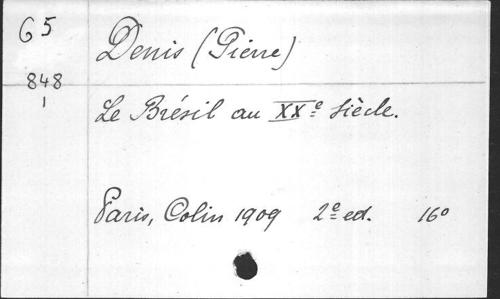 G5
Denis (Pierre)
848
1
Le Brésil au XXe Siècle.
Paris, Colin 1909 2e ed. 16o